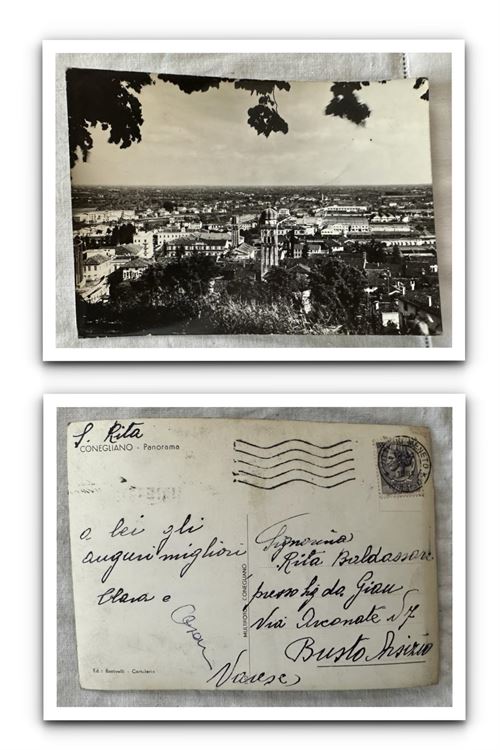 S. Rita
CONEGLIANO - Panorama
a lei gli
auguri migliori
Clara e
Signorina
Rita Baldassare
presso Sig da Gian
Via Arconate N7
Busto Arsizio
Varese
MULTIFOTO - CONEGLIANO
Ed.: Bastivelli - Cartoleria